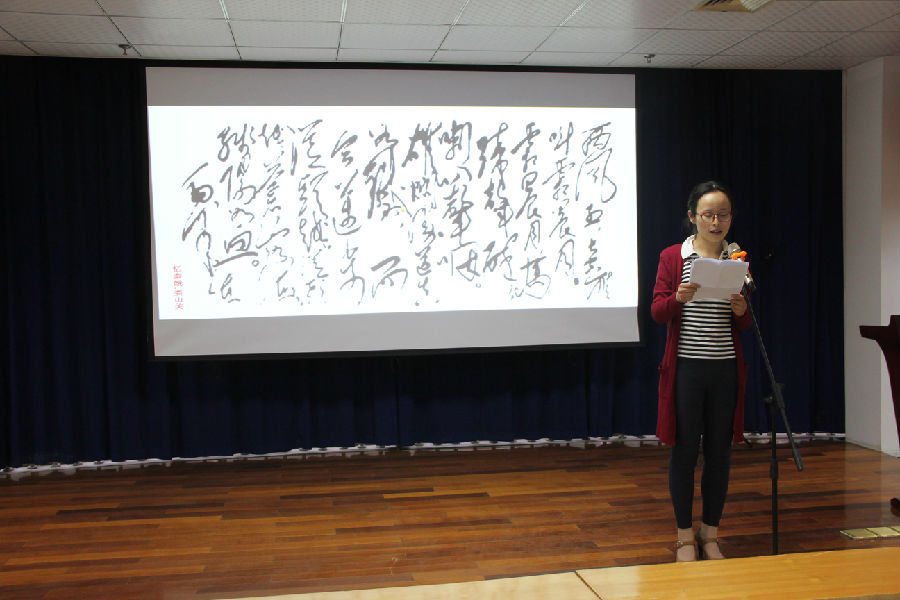 西风烈长空雁
叫霜晨月。
霜晨月马
蹄声碎
喇叭声咽
雄关漫道真
如铁而
今迈步
从头越从头
越苍山如海
残阳如血。
忆秦娥·娄山关